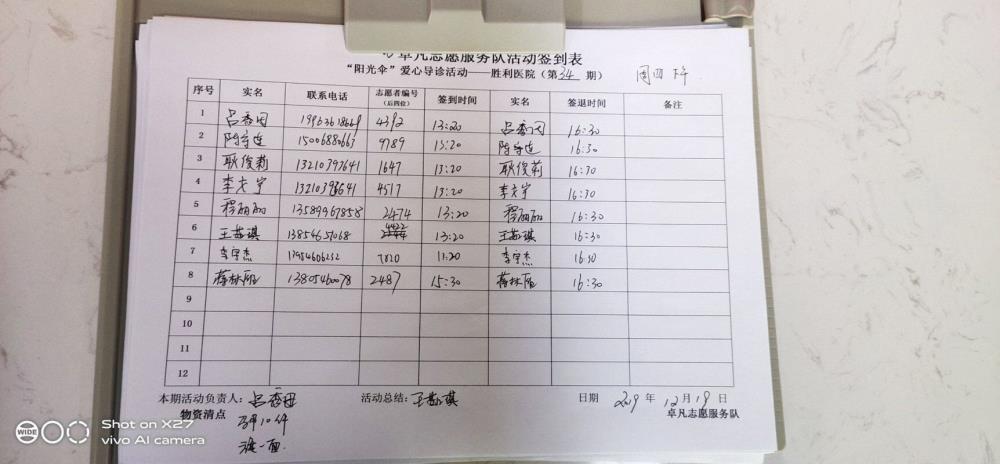 卓凡志愿服务队活动签到表
“阳光伞”爱心导诊活动——胜利医院（第34期） 周四下午
序号 实名 联系电话 志愿者编号（后四位） 签到时间 实名 签退时间 备注
1 吕秀国 4392 13:20 吕秀国 16:30
2 15006880663 9789 13:20 16:30
3 耿俊莉 13210397641 1647 13:20 耿俊莉 16:30
4 李文宇 4517 13:20 李文宇 16:30
5 程丽丽 13589967858 2474 13:20 程丽丽 16:30
6 13854651068 4422 13:20 16:30
7 李宇杰 7820 11:20 李宇杰 16:30
8 蒋林雁 13805460078 2487 15:30 蒋林雁 16:30
9
10
11
12
本期活动负责人： 活动总结： 日期 2019年12月19日
物资清点 卓凡志愿服务队
旗一面
WIDE Shot on X27
vivo AI camera